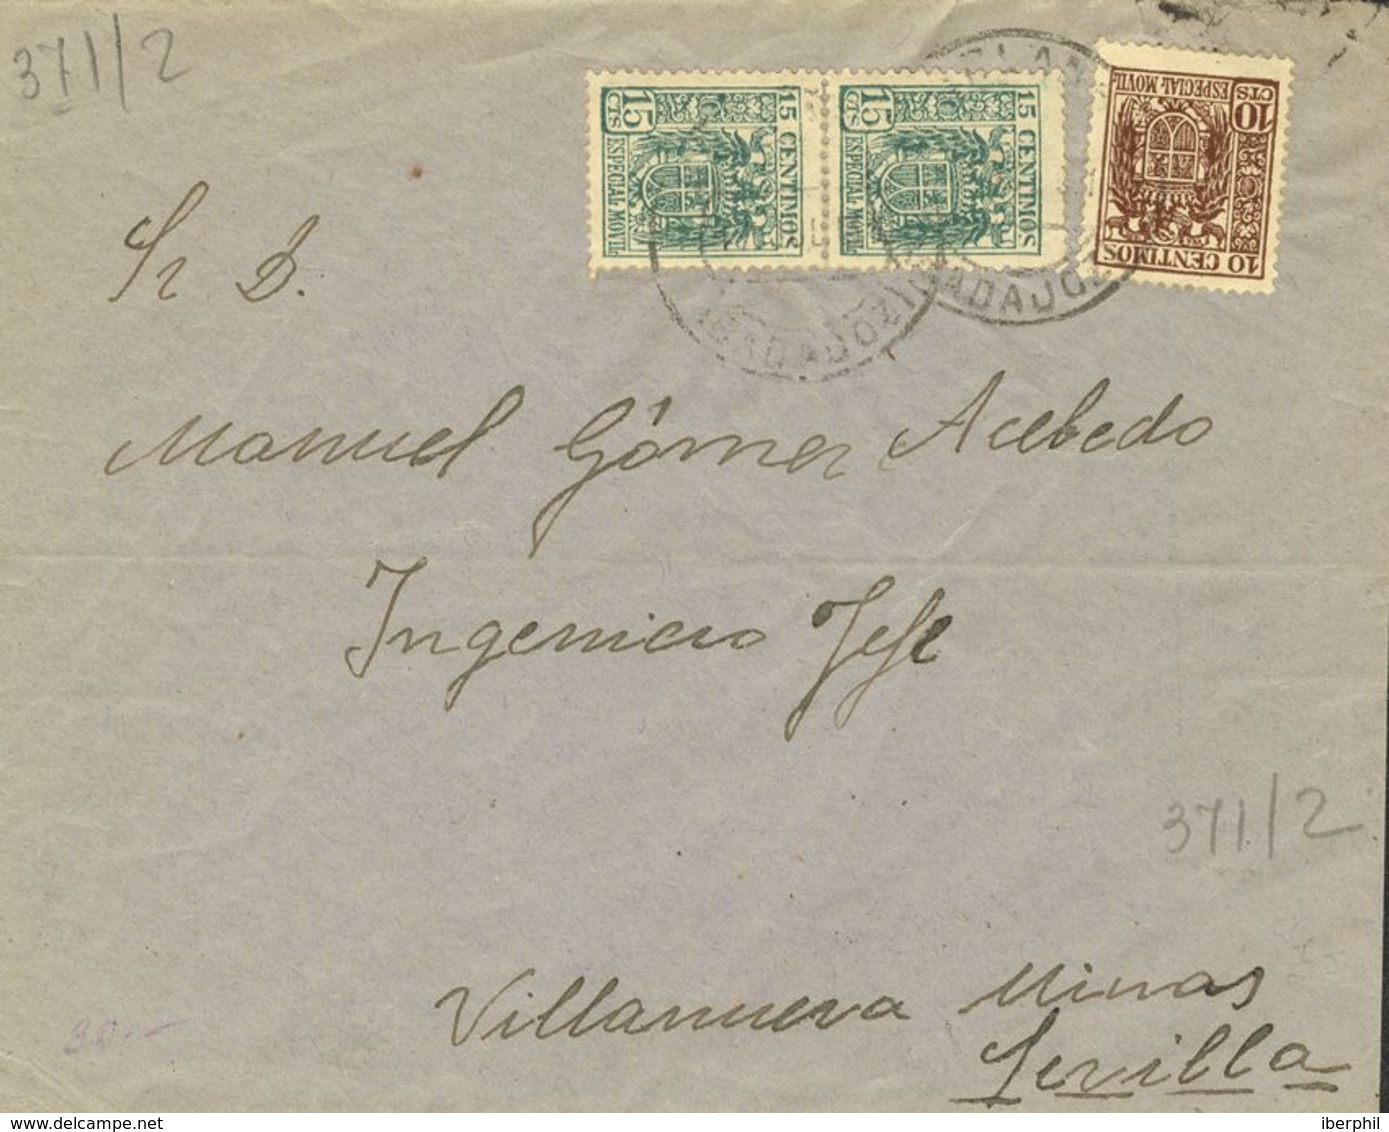 371/2
15 CENTIMOS
15 CTS
ESPECIAL MOVIL
15 CENTIMOS
15 CTS
ESPECIAL MOVIL
10 CENTIMOS
10 CTS
ESPECIAL MOVIL
BADAJOZ
BADAJOZ
Sr D.
Manuel Gómez Acebedo
Ingeniero Jefe
371/2
Villanueva Minas
Sevilla
30
iberphil